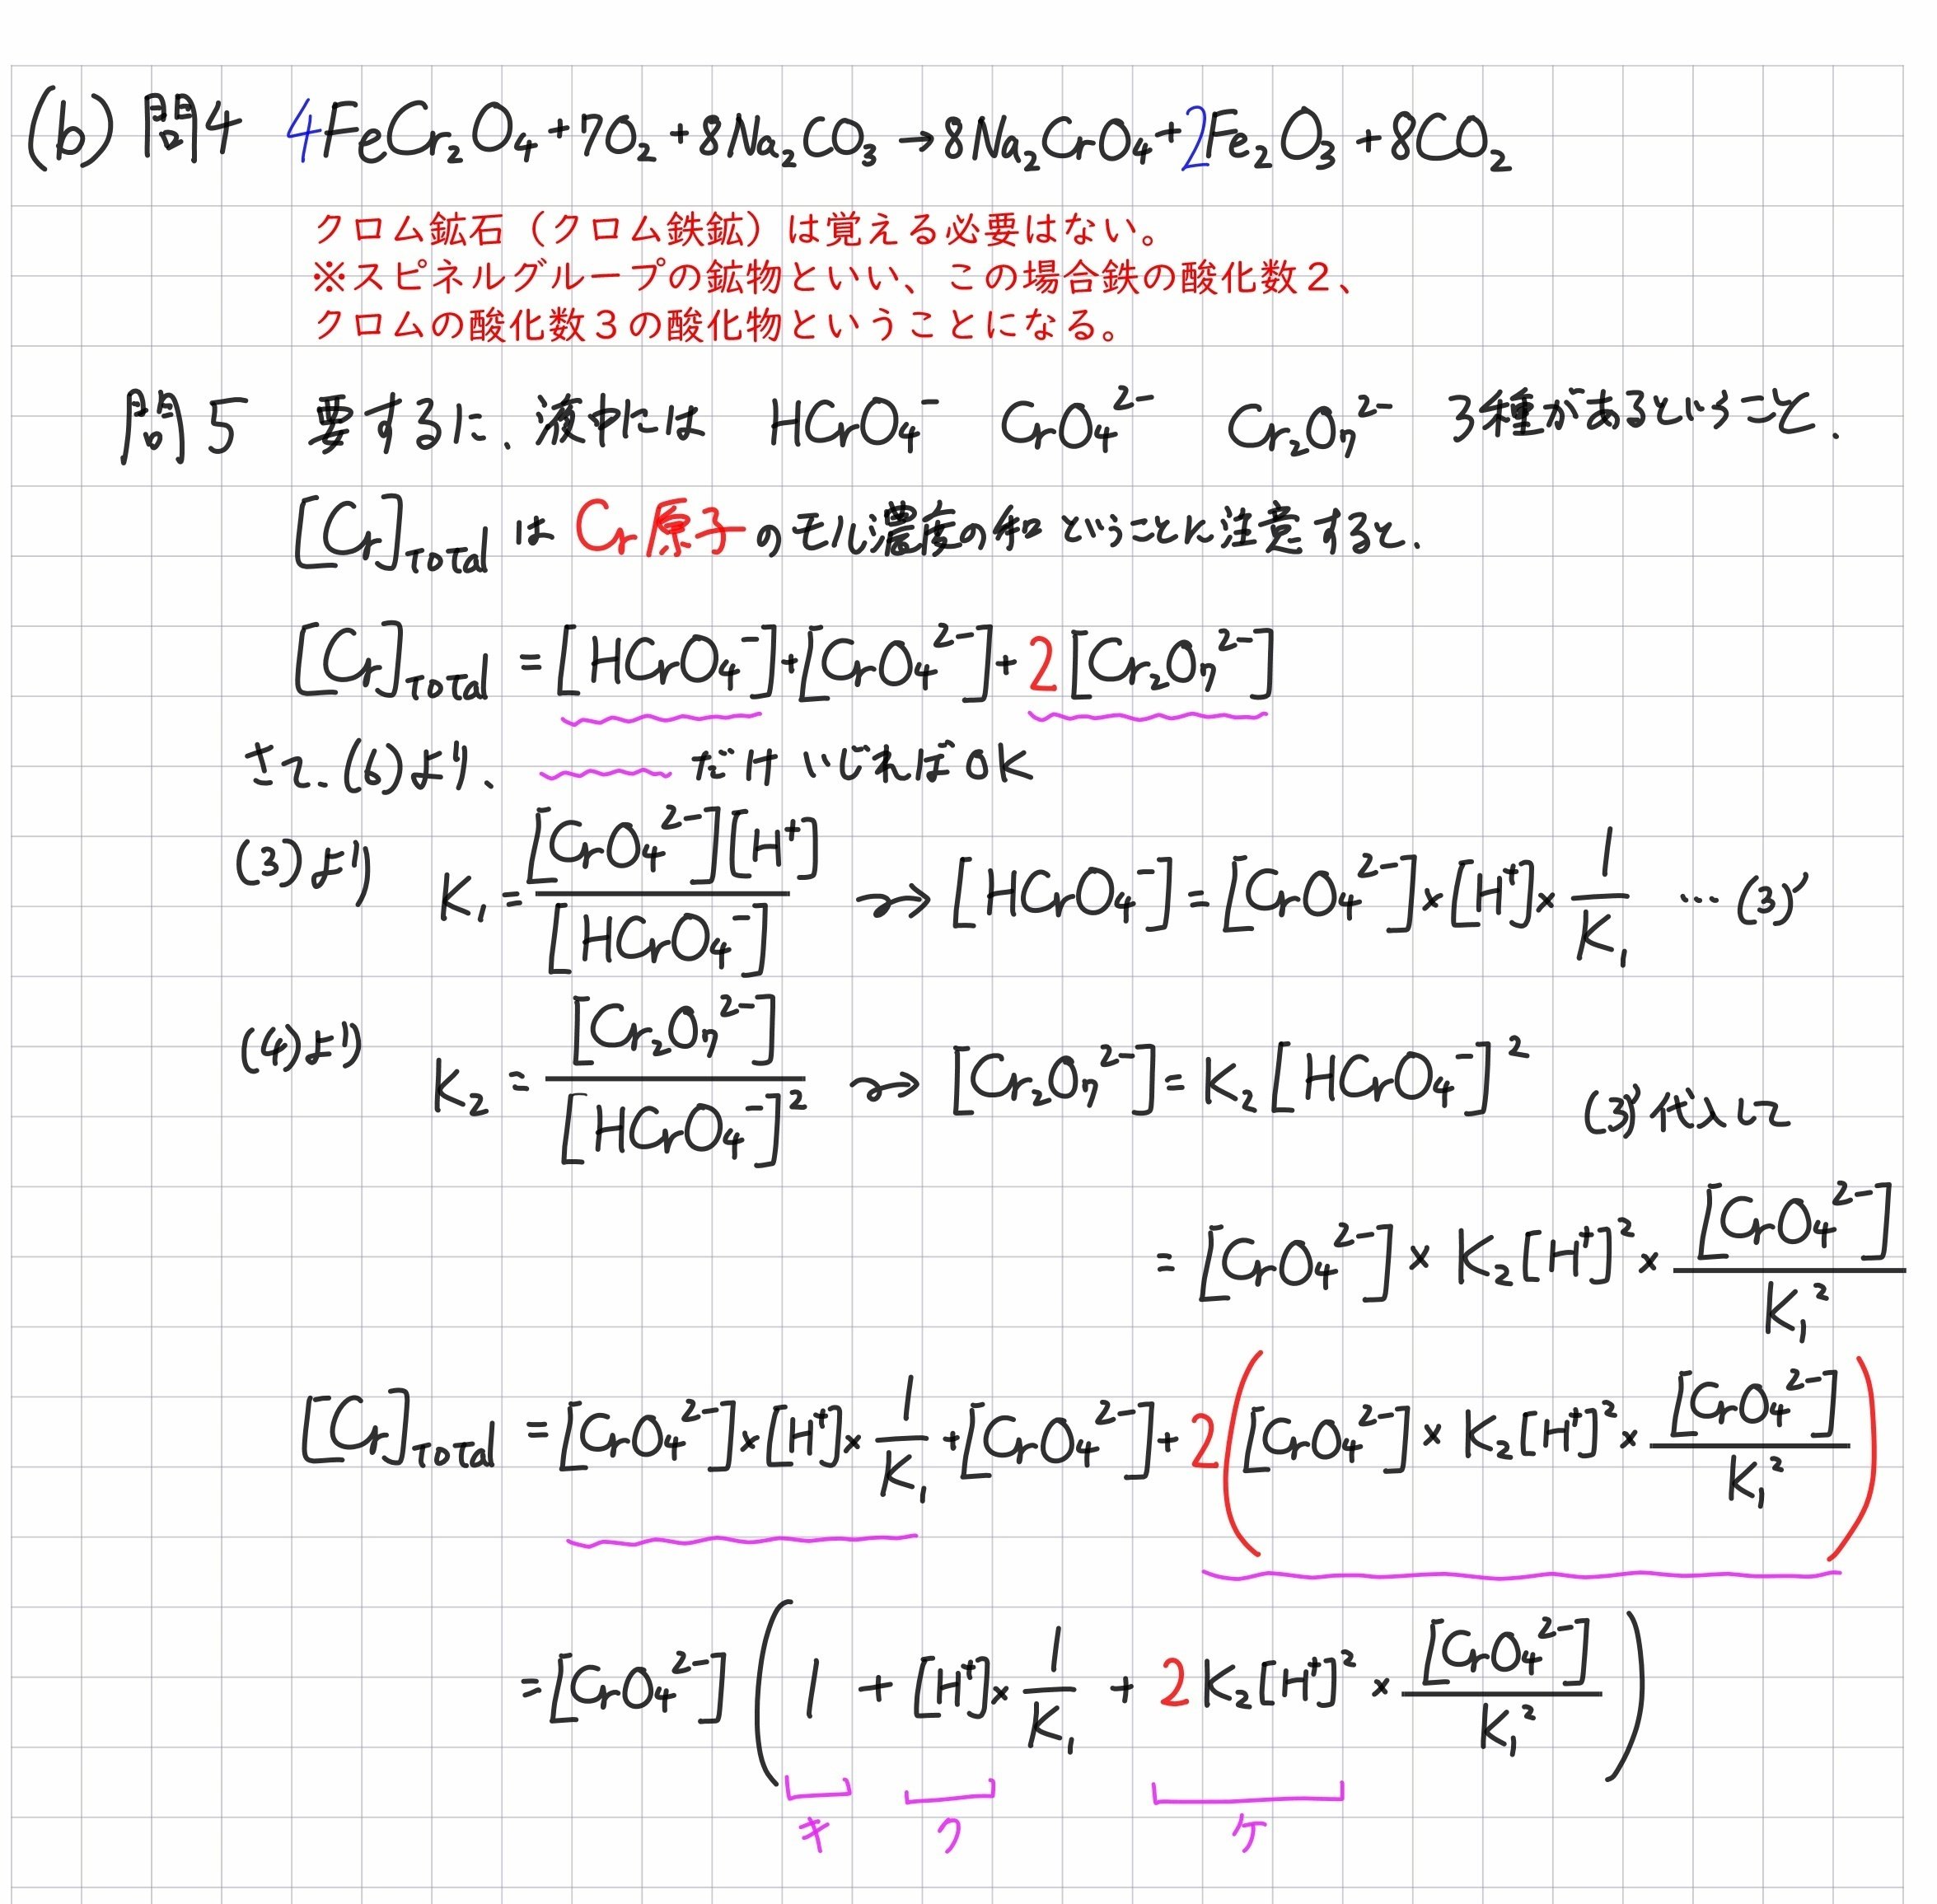 (b) 問4 4FeCr₂O₄+7O₂+8Na₂CO₃→8Na₂CrO₄+2Fe₂O₃+8CO₂
クロム鉱石（クロム鉄鉱）は覚える必要はない。
※スピネルグループの鉱物といい、この場合鉄の酸化数２、
クロムの酸化数３の酸化物ということになる。
問5 要するに、液中には HCrO₄⁻ CrO₄²⁻ Cr₂O₇²⁻ 3種があるということ.
[Cr]Total は Cr原子のモル濃度の和ということに注意すると.
[Cr]Total = [HCrO₄⁻]+[CrO₄²⁻]+2[Cr₂O₇²⁻]
さて、(6)より、 だけいじればOK
(3)より K₁ = [CrO₄²⁻][H⁺]/[HCrO₄⁻] → [HCrO₄⁻]=[CrO₄²⁻]×[H⁺]×1/K₁ … (3)'
(4)より K₂ = [Cr₂O₇²⁻]/[HCrO₄⁻]² → [Cr₂O₇²⁻]=K₂[HCrO₄⁻]²
(3)'代入して
= [CrO₄²⁻]×K₂[H⁺]²×[CrO₄²⁻]/K₁²
[Cr]Total = [CrO₄²⁻]×[H⁺]×1/K₁+[CrO₄²⁻]+2([CrO₄²⁻]×K₂[H⁺]²×[CrO₄²⁻]/K₁²)
=[CrO₄²⁻](1+[H⁺]×1/K₁+2K₂[H⁺]²×[CrO₄²⁻]/K₁²)
キ ク ケ